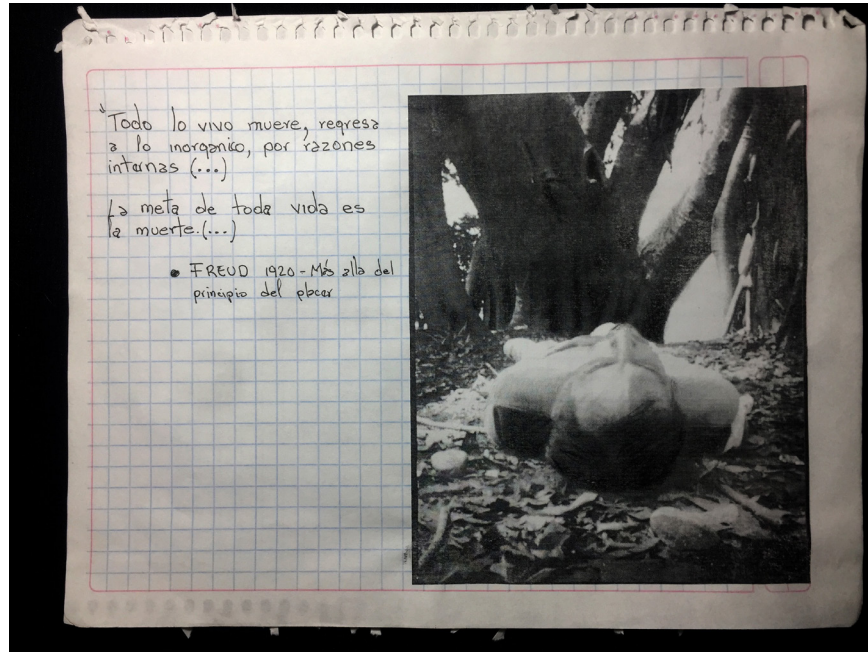 Todo lo vivo muere, regresa
a lo inorganico, por razones
internas (...)
La meta de toda vida es
la muerte.(...)
• FREUD 1920 - Más alla del
principio del placer